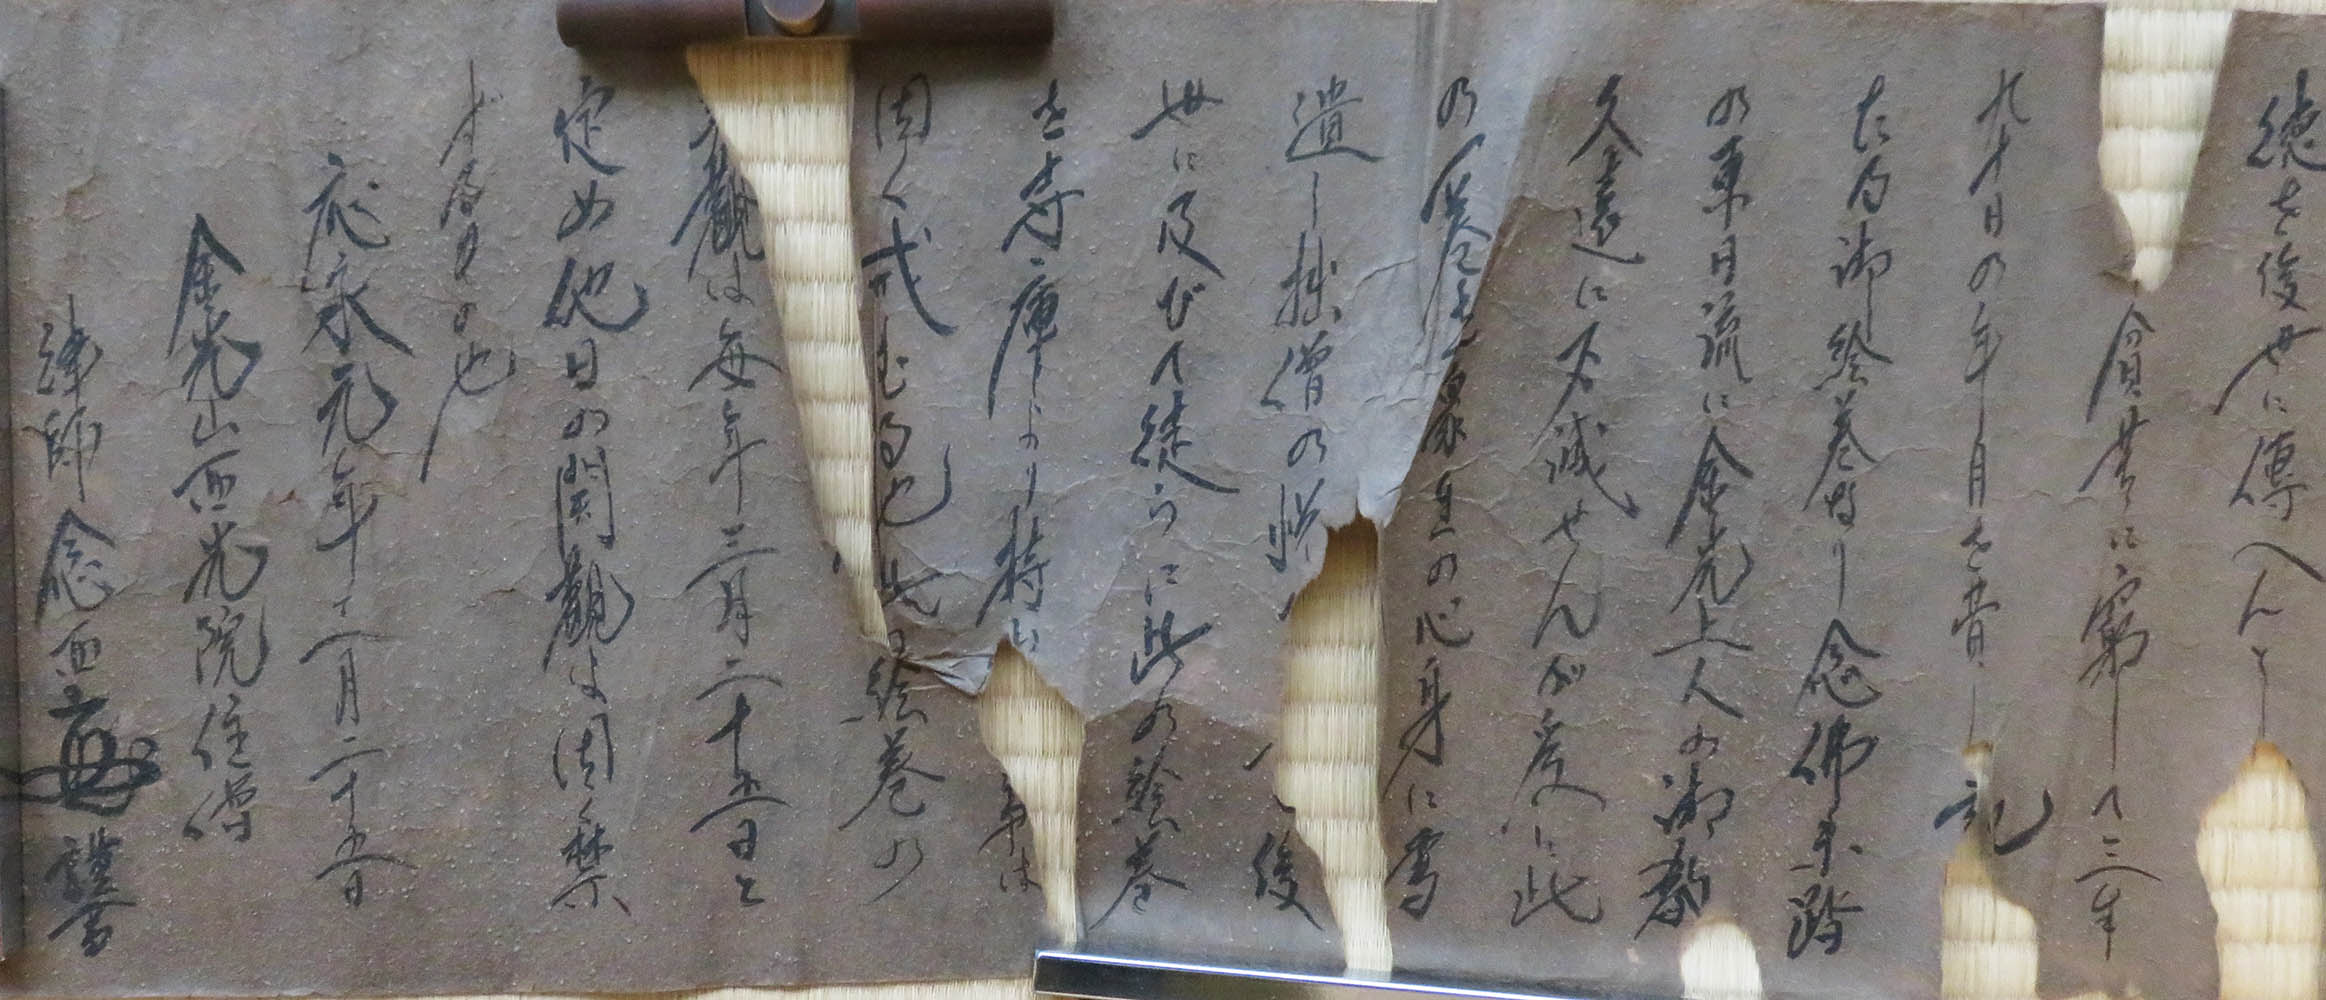 徳を後世に傳へんと
貧苦に窮して三年
九十日の年月を費し
たる御絵巻なり念佛示踏
の東日流に金光上人の御教
久遠に不滅せんが爰に此
の一巻を衆生の心身に寫
遺し拙僧の 後
世に及びて徒らに此の絵巻
を寺庫より持 事は
固く戒むる也此の絵巻の
観は毎年三月二十五日と
定め他日の閲観は固く禁
ず
應永元年十二月二十五日
金光山西光院住僧
繪師念西 謹書